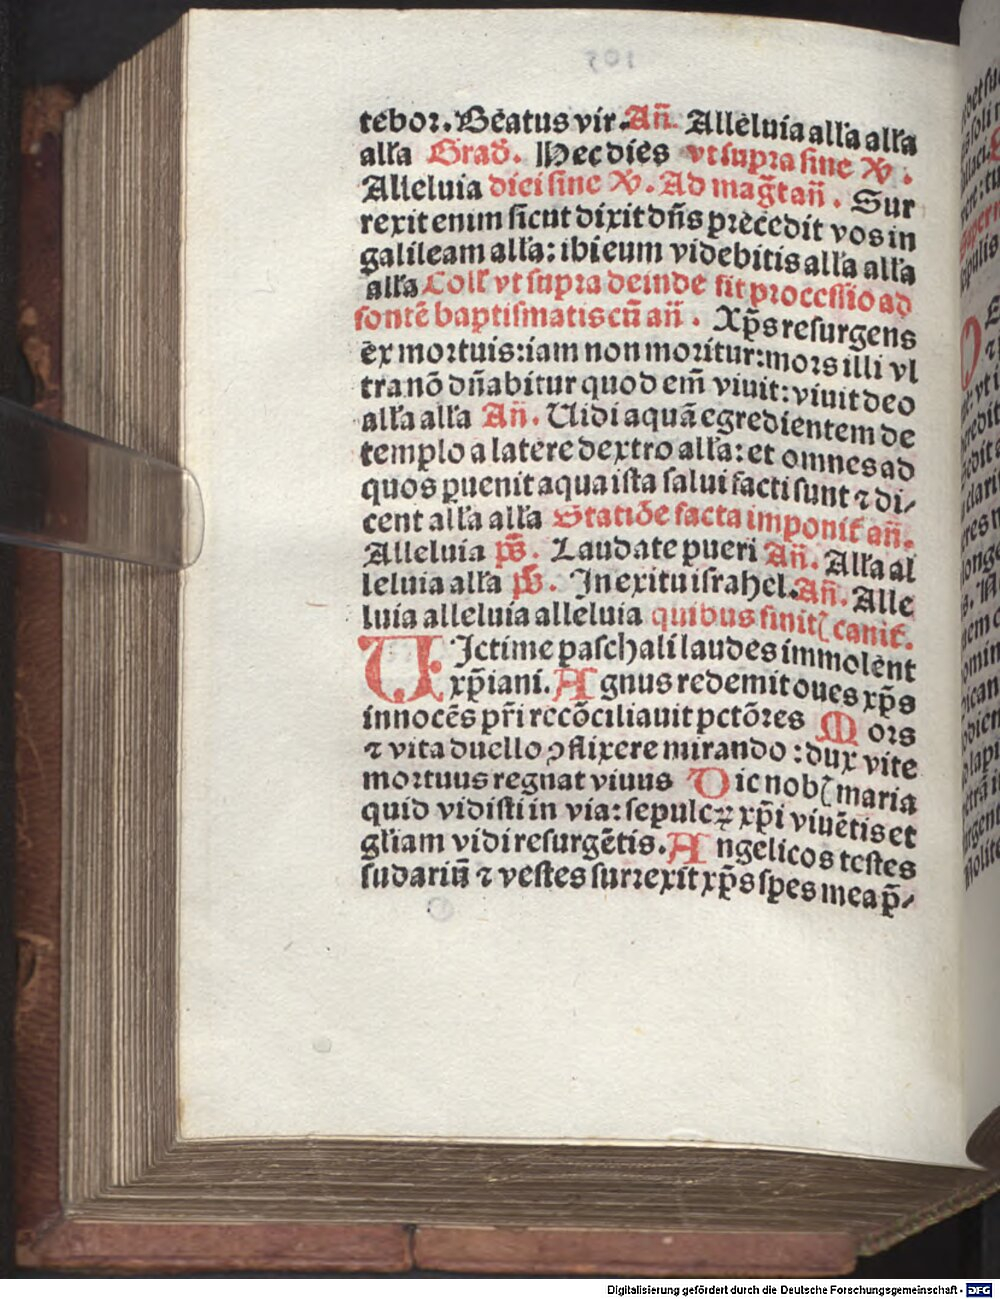 tebor. Beatus vir. Añ. Alleluia alľa alľa
alľa Grad̄. Hec dies vt supra sine ꝟ.
Alleluia diei sine ꝟ. Ad mag̃t añ. Sur
rexit enim sicut dixit dñs precedit vos in
galileam alľa: ibi eum videbitis alľa alľa
alľa Coll̄ vt supra deinde fit processio ad
fontē baptismatis cū añ. Xp̄s resurgens
ex mortuis: iam non moritur: mors illi vl
tra nō dñabitur quod em̄ viuit: viuit deo
alľa alľa Añ. Uidi aquā egredientem de
templo a latere dextro alľa: et omnes ad
quos ꝑuenit aqua ista salui facti sunt ⁊ di⸗
cent alľa alľa Statiōe facta imponit̄ añ.
Alleluia p̄s. Laudate pueri Añ. Alľa al
leluia alľa p̄s. In exitu israhel. Añ. Alle
luia alleluia alleluia quibus finitꝭ canit̄.
UIctime paschali laudes immolent
xp̄iani. Agnus redemit oues xp̄s
innocēs pr̄i recōciliauit pctōres Mors
⁊ vita duello ꝯflixere mirando: dux vite
mortuus regnat viuus Dic nobꝭ maria
quid vidisti in via: sepulcꝝ xp̄i viuētis et
gl̄iam vidi resurgētis. Angelicos testes
sudariū ⁊ vestes surrexit xp̄s spes mea p̄⸗
Digitalisierung gefördert durch die Deutsche Forschungsgemeinschaft - DFG